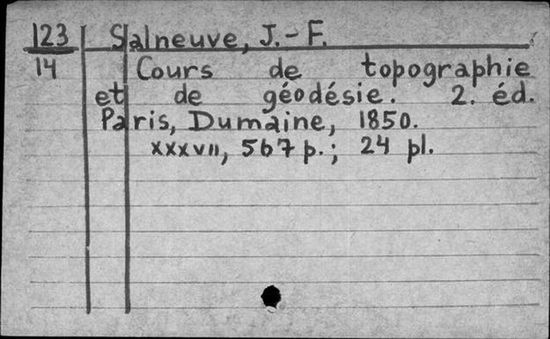 123 Salneuve, J.-F.
14 Cours de topographie
et de géodésie. 2. éd.
Paris, Dumaine, 1850.
xxxvii, 567 p.; 24 pl.